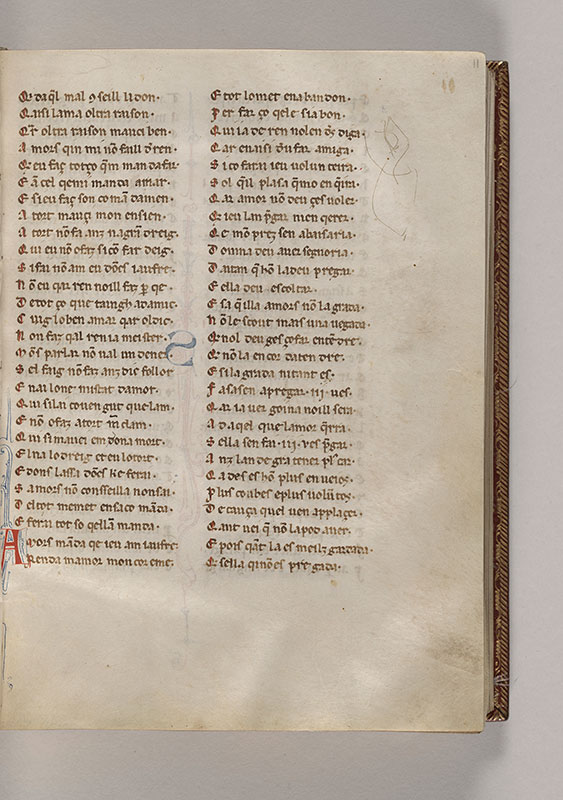 Q daql mal 9seill li don.
Q ais lama oltra raison.
Q'r oltra raison mauei ben.
A mors qin mi nō faill d'ren.
Q eu faç tot ço q̄m man da far
E ā cel qemi manda amar.
E sieu faç son co mā damen.
A tort mauçi mon ensien.
A tort nō fa anz nagrā dreig.
Q ui eu nō ofaz sicō far deig.
S i fai nō am eu dōcs iaufre.
N ō eu qar ren noill faz p qe.
D e tot ço que taingh adamic.
C uig lo ben amar qar oldic.
N on faz qal ren la meister.
M ōs parlar nō ual un dener.
S el faig nō faz anz dic follor
E nai lonc mistat damor.
Q ui silai couen gut que lam.
E nō ofaz atort m clam.
Q ui si mauci em dona mort.
E lna lo dreig et eu lo tort.
E dons lassa dōcs ke ferai.
S a mors nō consseilla non sai.
D el tot memet ensa co māda.
E ferai tot so qella manda.
A Mors māda qe ieu am iaufre.
R enda mamor mon cor eme.
E tot lo met ena ban don.
P er far ço qele sia bon.
Q ui ia de ren nolen diga
Q ar en aisi far amiga.
S i co farai ieu uol un teira.
S ol q'il plasa q̄mo en q'ira.
Q ar amor nō deu ges uoler.
Q ieu lam p'gar men qerer.
Q e mō prez sen abaisaria.
D onna deu auer segnoria.
D auan q̄ hō la deu pregar.
E ella deu escoltar.
E sa q'illa amors nō la grada.
N ō le scout mais una uegada.
Q nol deu ges ço far entēdre.
Q nō la en cor daten dre.
E si la grada nitant es.
F asa sen apregar .iii. ues.
Q ar ia uez goina noill sera.
A daqel que lamor q'rra.
S ella sen fai .iii. ues p'gar.
A nz lan de gra tener pl' car.
Q a des es hō plus en ueios.
P lus coubes e plus uolūtos.
D e cauça quel uen applaçer.
Q ant uei q̄ nō la pod auer.
E pois qāt la es meilz gardada.
Q sella qi nō es pre gada.
11